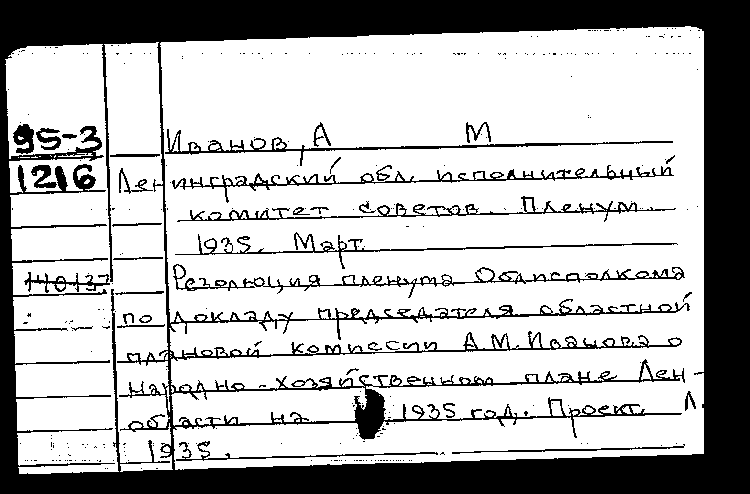 95-3 Иванов, А М
1216 Ленинградский обл. исполнительный
комитет советов. Пленум.
1935. Март.
140137 Резолюция пленума Облисполкома
по докладу председателя областной
плановой комиссии А.М. Иванова о
народно-хозяйственном плане Лен-
области на 1935 год. Проект. Л.
1935.